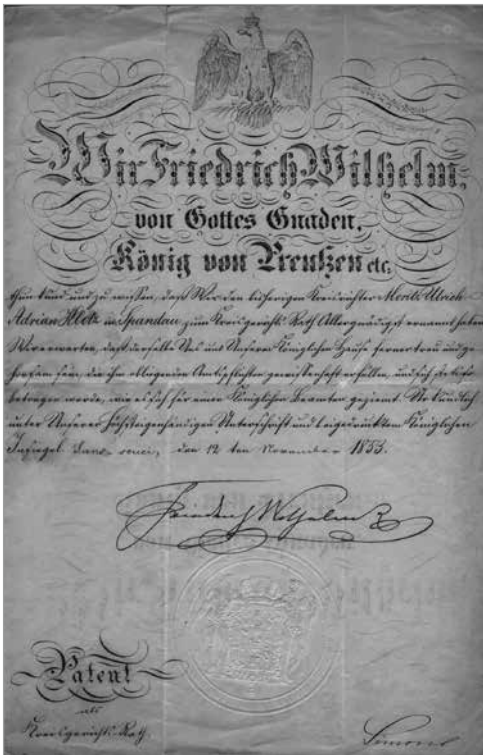 Wir Friedrich Wilhelm,
von Gottes Gnaden,
König von Preußen etc.
thun kund und zu wissen, daß Wir den bisherigen Kreisrichter Moritz Ulrich
Adrian Klotz in Spandau, zum Kreisgerichts Rath Allergnädigst ernannt haben.
Wir erwarten, daß derselbe Uns und Unserm Königlichen Hause ferner treu und ge-
horsam sein, die ihm obliegenden Amtspflichten gewissenhaft erfüllen, und sich stets so
betragen werde, wie es sich für einen Königlichen Beamten geziemt. Urkundlich
unter Unserer Höchsteigenhändigen Unterschrift und beigedrucktem Königlichen
Insiegel. Sans-souci, den 12 ten November 1853.
Friedrich Wilhelm
Patent
als
Kreisgerichts-Rath.
Simons